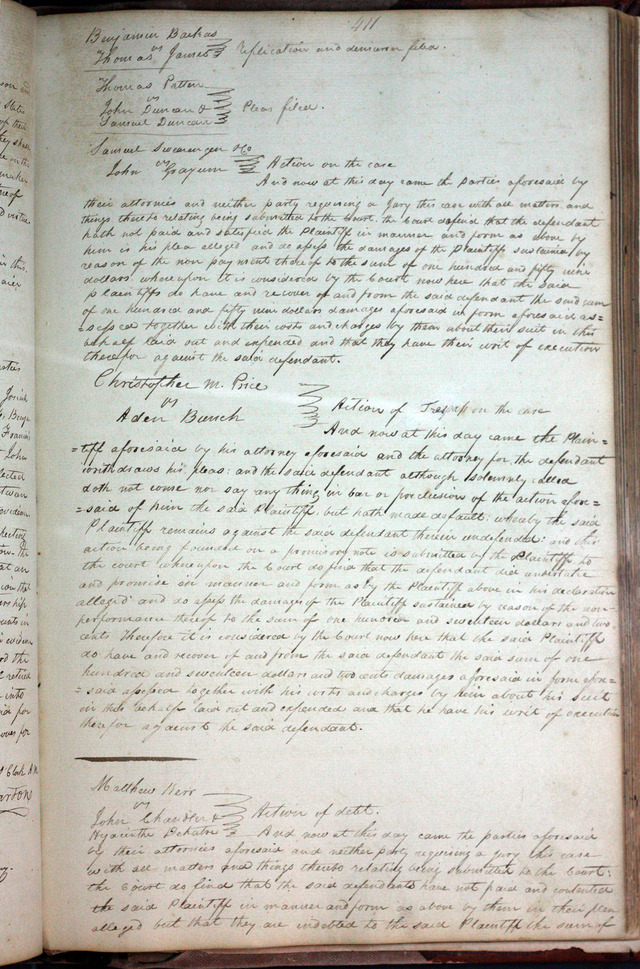 411
Benjamin Backus
vs
Thomas James Replication and demurrer filed.
Thomas Patten
vs
John Duncan & Pleas filed.
Samuel Duncan
Samuel Swearengen & Co
vs
John Grayum Action on the case
And now at this day came the parties aforesaid by
their attornies and neither party requiring a Jury this case with all matters and
things thereto relating being submitted to the Court. the Court do find that the defendant
hath not paid and satisfied the Plaintiff in manner and form as above by
him in his plea alleged and do assess the damages of the Plaintiff sustained by
reason of the non payment thereof to the sum of one hundred and fifty nine
dollars whereupon It is considered by the Court now here that the said
plaintiffs do have and recover of and from the said defendant the said sum
of one hundred and fifty nine dollars damages aforesaid in form aforesaid as=
=sessed together with their costs and charges by them about their suit in this
behalf laid out and expended and that they have their writ of execution
therefor against the said defendant.
Christopher M. Price
vs
Aden Bunch Action of Trespass on the case
And now at this day came the Plain=
=tiff aforesaid by his attorney aforesaid and the attorney for the defendant
withdraws his pleas: and the said defendant although solemnly called
doth not come nor say any thing in bar or preclusion of the action afore=
=said of him the said Plaintiff, but hath made default; whereby the said
Plaintiff remains against the said defendant therein undefended: and this
action being founded on a promissory note is submitted by the Plaintiff to
the court whereupon the Court do find that the defendant did undertake
and promise in manner and form as by the Plaintiff above in his declaration
alleged and do assess the damages of the Plaintiff sustained by reason of the non=
performance thereof to the sum of one hundred and seventeen dollars and two
cents Therefore it is considered by the Court now here that the said Plaintiff
do have and recover of and from the said defendant the said sum of one
hundred and seventeen dollars and two cents damages aforesaid in form afore=
=said assessed together with his costs and charges by him about his Suit
in this behalf laid out and expended and that he have his writ of execution
therefor against the said defendant.
Matthew Kerr
vs
John Chandler & Action of debt.
Hyacinthe And now at this day came the parties aforesaid
by their attornies aforesaid and neither party requiring a jury this case
with all matters and things thereto relating being submitted to the Court:
the Court do find that the said defendants have not paid and contented
the said Plaintiff in manner and form as above by them in their plea
alleged but that they are indebted to the said Plaintiff the sum of